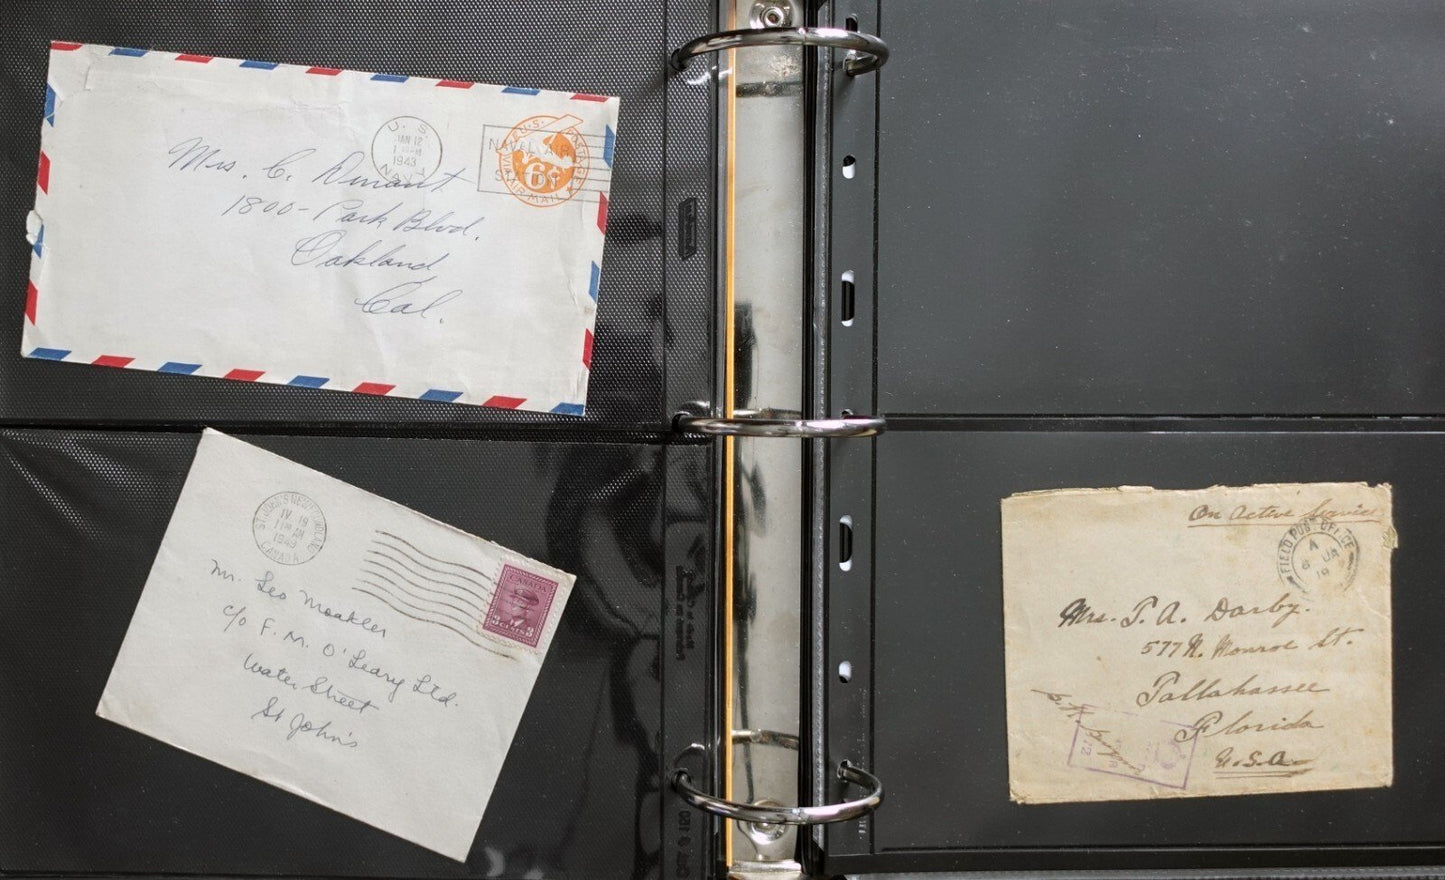 U. S.
JAN 12
1943
NAVY
NAVAL AIR
STATION
U.S. POSTAGE
6¢
VIA AIR MAIL
Mrs. C. Durant
1800 - Park Blvd.
Oakland,
Cal.
ST. JOHN'S NEWFOUNDLAND
IV 19
11 AM
1943
CANADA
CANADA
3 CENTS 3
Mr. Leo Moakler
c/o F. M. O'Leary Ltd.
Water Street
St John's
On Active Service
FIELD POST OFFICE
A
6 JA
19
Mrs. T. A. Darby.
577 N. Monroe St.
Tallahassee
Florida
U.S.A.